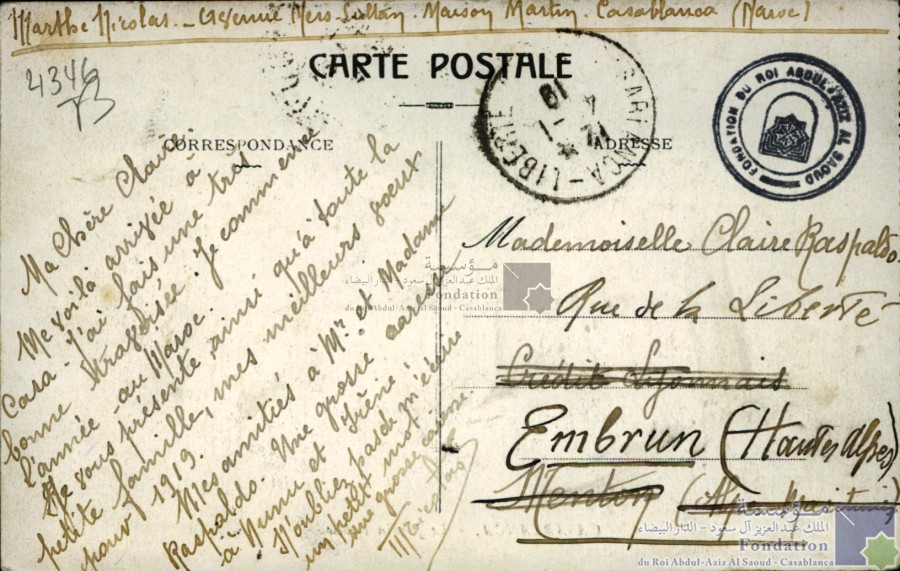 Marthe Nicolas - Mers-Sultan. Maison Martin. Casablanca (Maroc)
4346
CARTE POSTALE
CORRESPONDANCE
ADRESSE
FONDATION DU ROI ABDUL AZIZ AL SAOUD
CASABLANCA-LIBERTE
Ma Chère Claire
Me voilà arrivée à
Casa. J'ai fais une très
bonne traversée. Je commence
l'année au Maroc.
Je vous présente, ainsi qu'à toute la
petite famille, mes meilleurs voeux
pour 1919.
Mes amitiés à Mr et Madame
Raspaldo. Une grosse caresse
à Nunu et Irène!
N'oubliez pas de m'écrire
un petit mot.
une grosse caresse.
Mademoiselle Claire Raspaldo
Rue de la Liberté
Crédit Lyonnais
Embrun (Hautes Alpes)
Menton
مؤسسة
الملك عبد العزيز آل سعود - الدار البيضاء
Fondation
du Roi Abdul-Aziz Al Saoud - Casablanca
مؤسسة
الملك عبد العزيز آل سعود - الدار البيضاء
Fondation
du Roi Abdul-Aziz Al Saoud - Casablanca